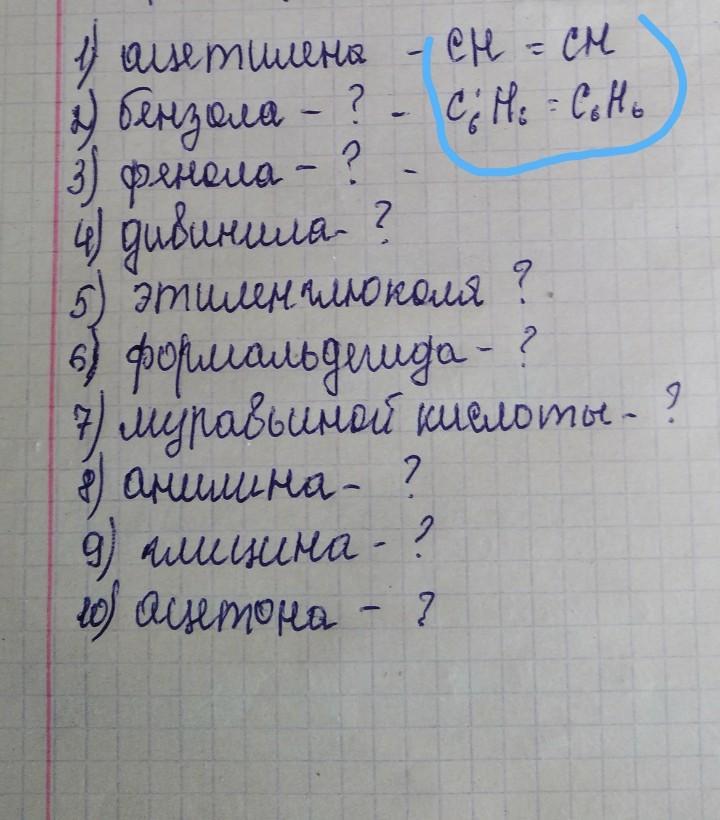 1) ацетилена - CH = CH
2) бензола - ? - C₆H₆ = C₆H₆
3) фенола - ? -
4) дивинила - ?
5) этиленглюколя ?
6) формальдегида - ?
7) муравьиной кислоты - ?
8) анилина - ?
9) глицина - ?
10) ацетона - ?